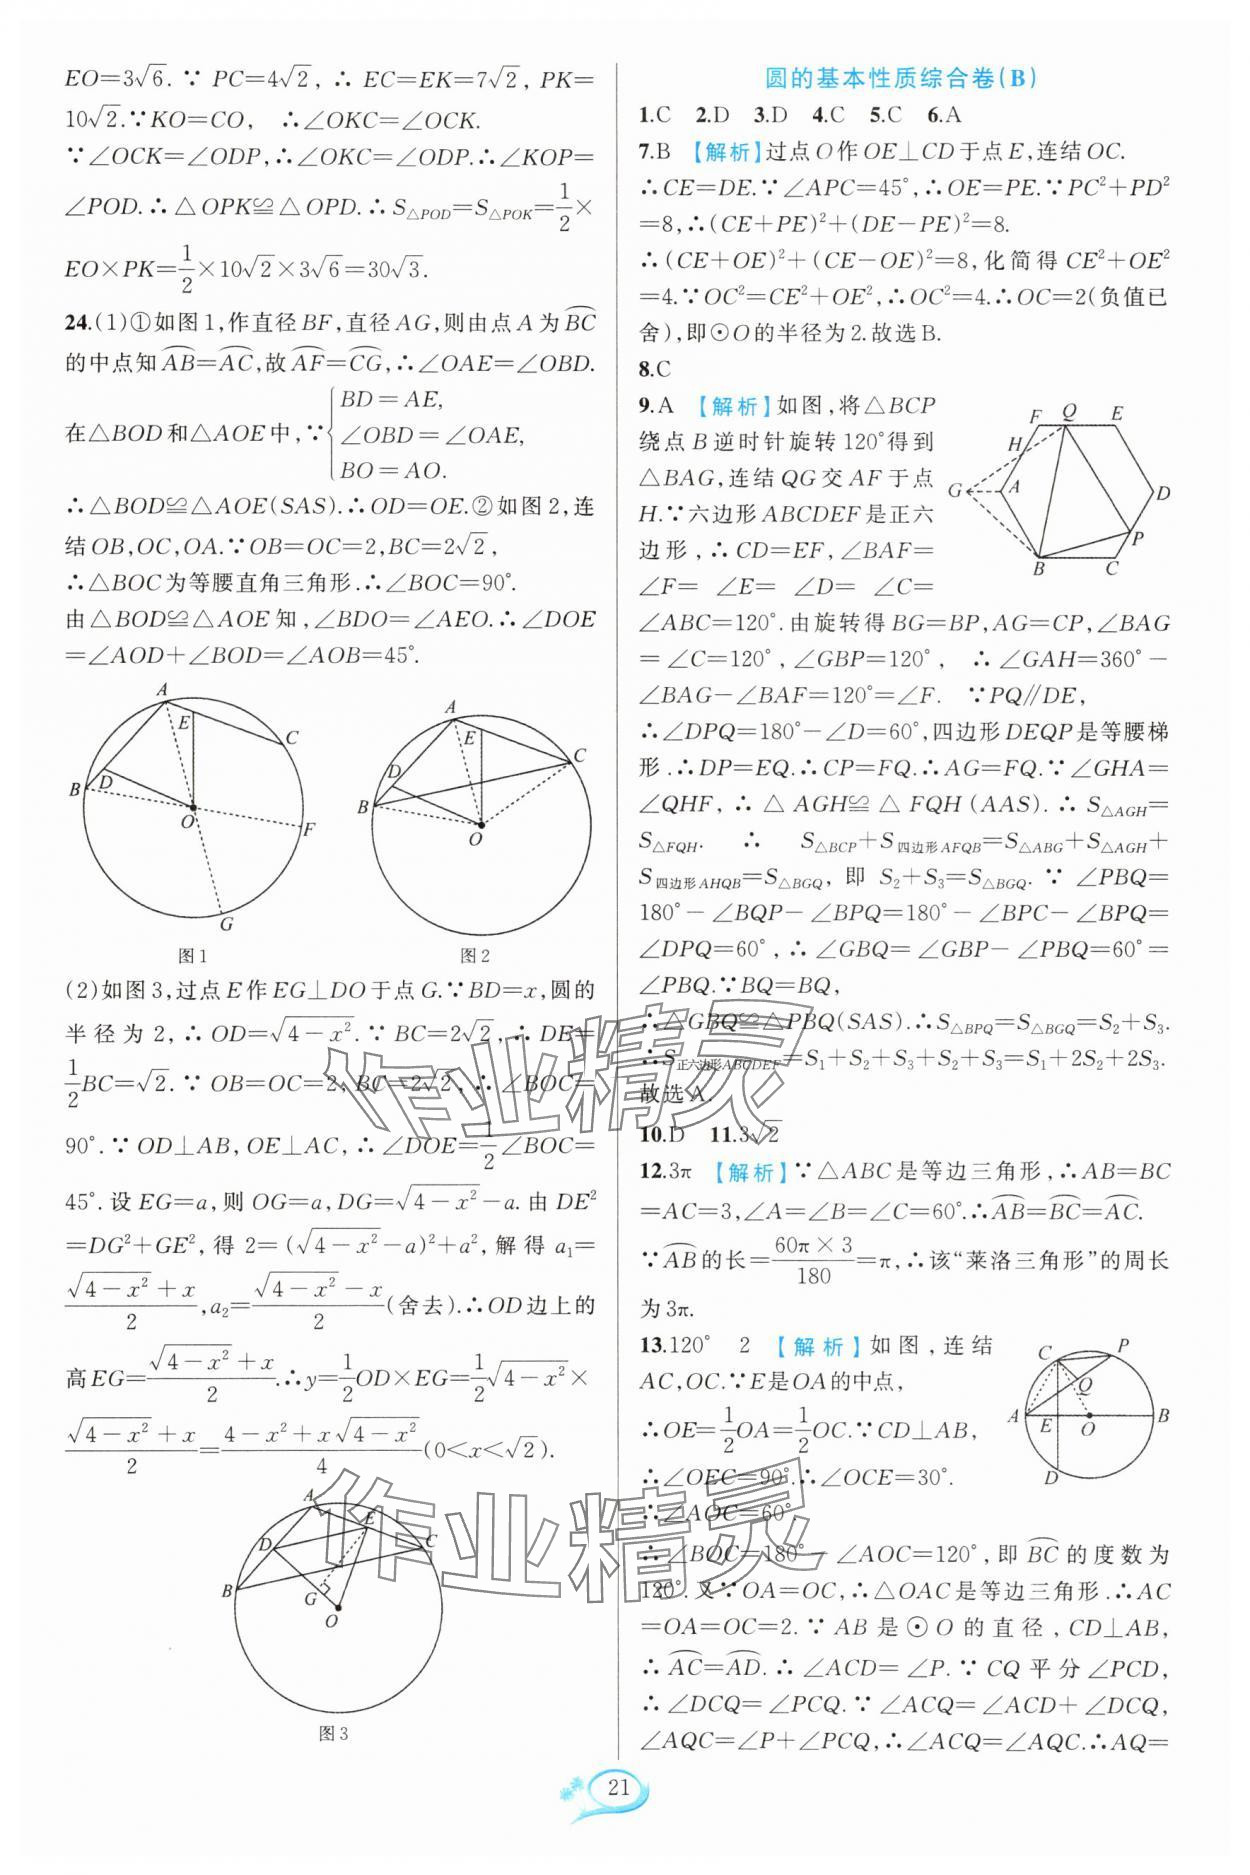 EO=3√6.∵ PC=4√2，∴ EC=EK=7√2，PK=
10√2.∵KO=CO，∴∠OKC=∠OCK.
∵∠OCK=∠ODP，∴∠OKC=∠ODP.∴∠KOP=
∠POD.∴△OPK≌△OPD.∴S△POD=S△POK=1/2×
EO×PK=1/2×10√2×3√6=30√3.
24.(1)①如图1，作直径BF，直径AG，则由点A为⌒BC
的中点知⌒AB=⌒AC，故⌒AF=⌒CG，∴∠OAE=∠OBD.
在△BOD和△AOE中，∵{BD=AE，
∠OBD=∠OAE，
BO=AO.
∴△BOD≌△AOE(SAS).∴OD=OE.②如图2，连
结OB，OC，OA.∵OB=OC=2，BC=2√2，
∴△BOC为等腰直角三角形.∴∠BOC=90°.
由△BOD≌△AOE知，∠BDO=∠AEO.∴∠DOE
=∠AOD+∠BOD=∠AOB=45°.
A E C B D O F G
图1
A E C D B O
图2
(2)如图3，过点E作EG⊥DO于点G.∵BD=x，圆的
半径为2，∴OD=√(4-x²).∵BC=2√2，∴DE=
1/2BC=√2.∵OB=OC=2，BC=2√2，∴∠BOC=
90°.∵OD⊥AB，OE⊥AC，∴∠DOE=1/2∠BOC=
45°.设EG=a，则OG=a，DG=√(4-x²)-a.由DE²
=DG²+GE²，得2=(√(4-x²)-a)²+a²，解得a₁=
(√(4-x²)+x)/2，a₂=(√(4-x²)-x)/2(舍去).∴OD边上的
高EG=(√(4-x²)+x)/2.∴y=1/2OD×EG=1/2√(4-x²)×
(√(4-x²)+x)/2=(4-x²+x√(4-x²))/4(0<x<√2).
A E C D B G O
图3
圆的基本性质综合卷(B)
1.C 2.D 3.D 4.C 5.C 6.A
7.B 【解析】过点O作OE⊥CD于点E，连结OC.
∴CE=DE.∵∠APC=45°，∴OE=PE.∵PC²+PD²
=8，∴(CE+PE)²+(DE-PE)²=8.
∴(CE+OE)²+(CE-OE)²=8，化简得CE²+OE²
=4.∵OC²=CE²+OE²，∴OC²=4.∴OC=2(负值已
舍)，即⊙O的半径为2.故选B.
8.C
9.A 【解析】如图，将△BCP
绕点B逆时针旋转120°得到
△BAG，连结QG交AF于点
H.∵六边形ABCDEF是正六
边形，∴CD=EF，∠BAF=
∠F= ∠E= ∠D= ∠C=
F Q E H G A D P B C
∠ABC=120°.由旋转得BG=BP，AG=CP，∠BAG
=∠C=120°，∠GBP=120°，∴∠GAH=360°-
∠BAG-∠BAF=120°=∠F. ∵PQ∥DE，
∴∠DPQ=180°-∠D=60°，四边形DEQP是等腰梯
形.∴DP=EQ.∴CP=FQ.∴AG=FQ.∵∠GHA=
∠QHF，∴△AGH≌△FQH(AAS).∴S△AGH=
S△FQH. ∴ S△BCP+S四边形AFQB=S△ABG+S△AGH+
S四边形AHQB=S△BGQ，即 S₂+S₃=S△BGQ.∵∠PBQ=
180°-∠BQP-∠BPQ=180°-∠BPC-∠BPQ=
∠DPQ=60°，∴∠GBQ=∠GBP-∠PBQ=60°=
∠PBQ.∵BQ=BQ，
∴△GBQ≌△PBQ(SAS).∴S△BPQ=S△BGQ=S₂+S₃.
∴S正六边形ABCDEF=S₁+S₂+S₃+S₂+S₃=S₁+2S₂+2S₃.
故选A.
10.D 11.3√2
12.3π 【解析】∵△ABC是等边三角形，∴AB=BC
=AC=3，∠A=∠B=∠C=60°.∴⌒AB=⌒BC=⌒AC.
∵⌒AB的长=(60π×3)/180=π，∴该“莱洛三角形”的周长
为3π.
13.120° 2 【解析】如图，连结
AC，OC.∵E是OA的中点，
∴OE=1/2OA=1/2OC.∵CD⊥AB，
∴∠OEC=90°.∴∠OCE=30°.
∴∠AOC=60°.
C P Q A E O B D
∴∠BOC=180°-∠AOC=120°，即⌒BC的度数为
120°.又∵OA=OC，∴△OAC是等边三角形.∴AC
=OA=OC=2.∵AB是⊙O的直径，CD⊥AB，
∴⌒AC=⌒AD.∴∠ACD=∠P.∵CQ平分∠PCD，
∴∠DCQ=∠PCQ.∵∠ACQ=∠ACD+∠DCQ，
∠AQC=∠P+∠PCQ，∴∠ACQ=∠AQC.∴AQ=
21
作业精灵
作业精灵